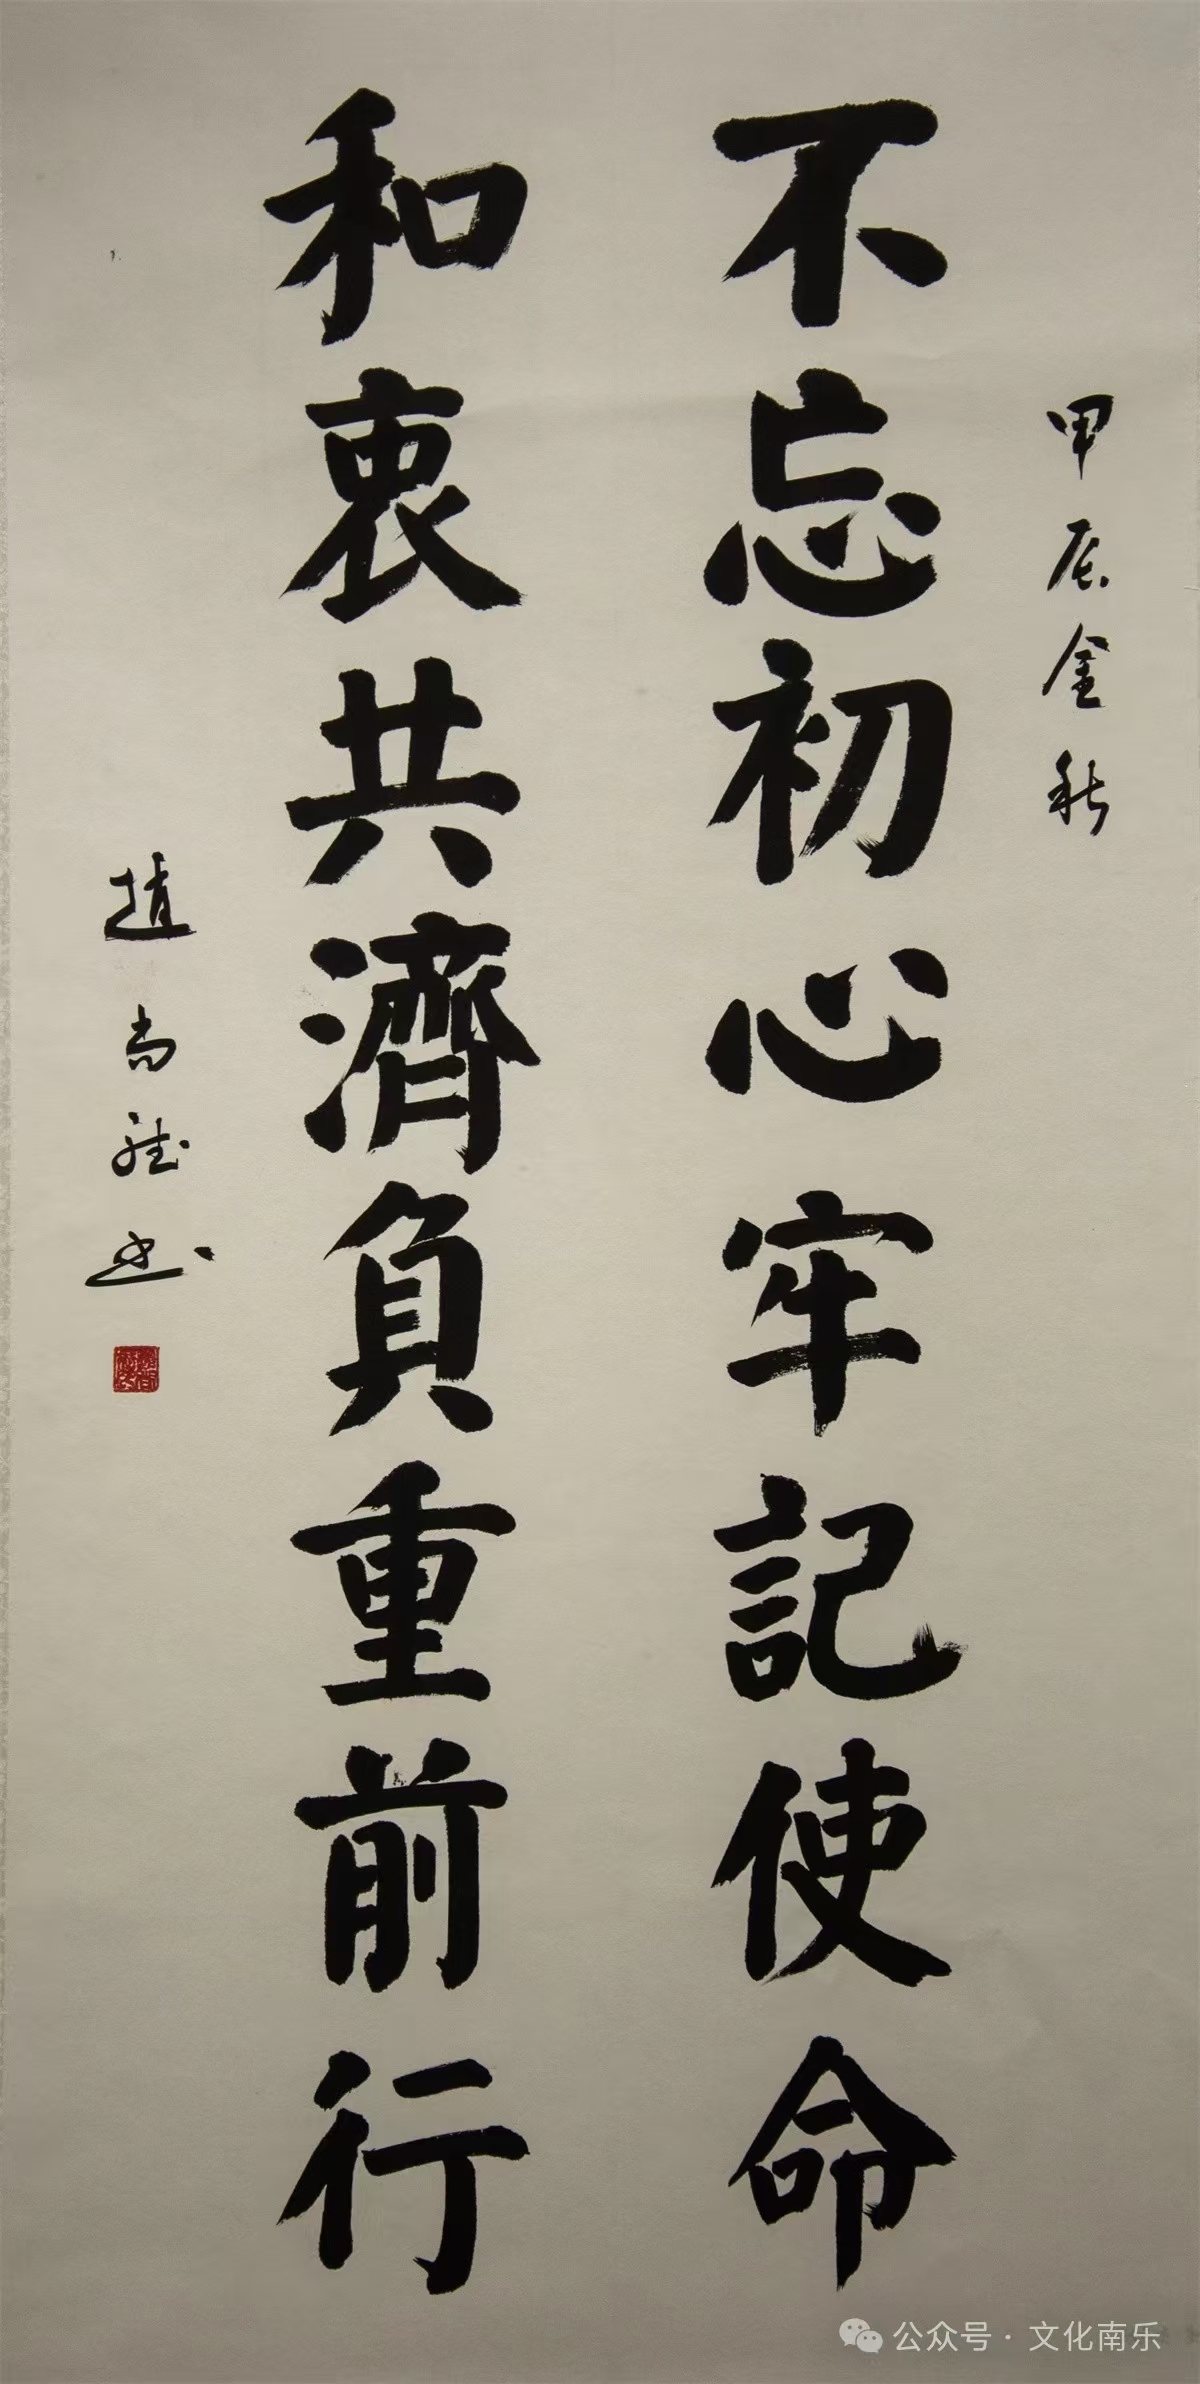 甲辰金秋
不忘初心牢記使命
和衷共濟負重前行
趙尚
公众号·文化南乐